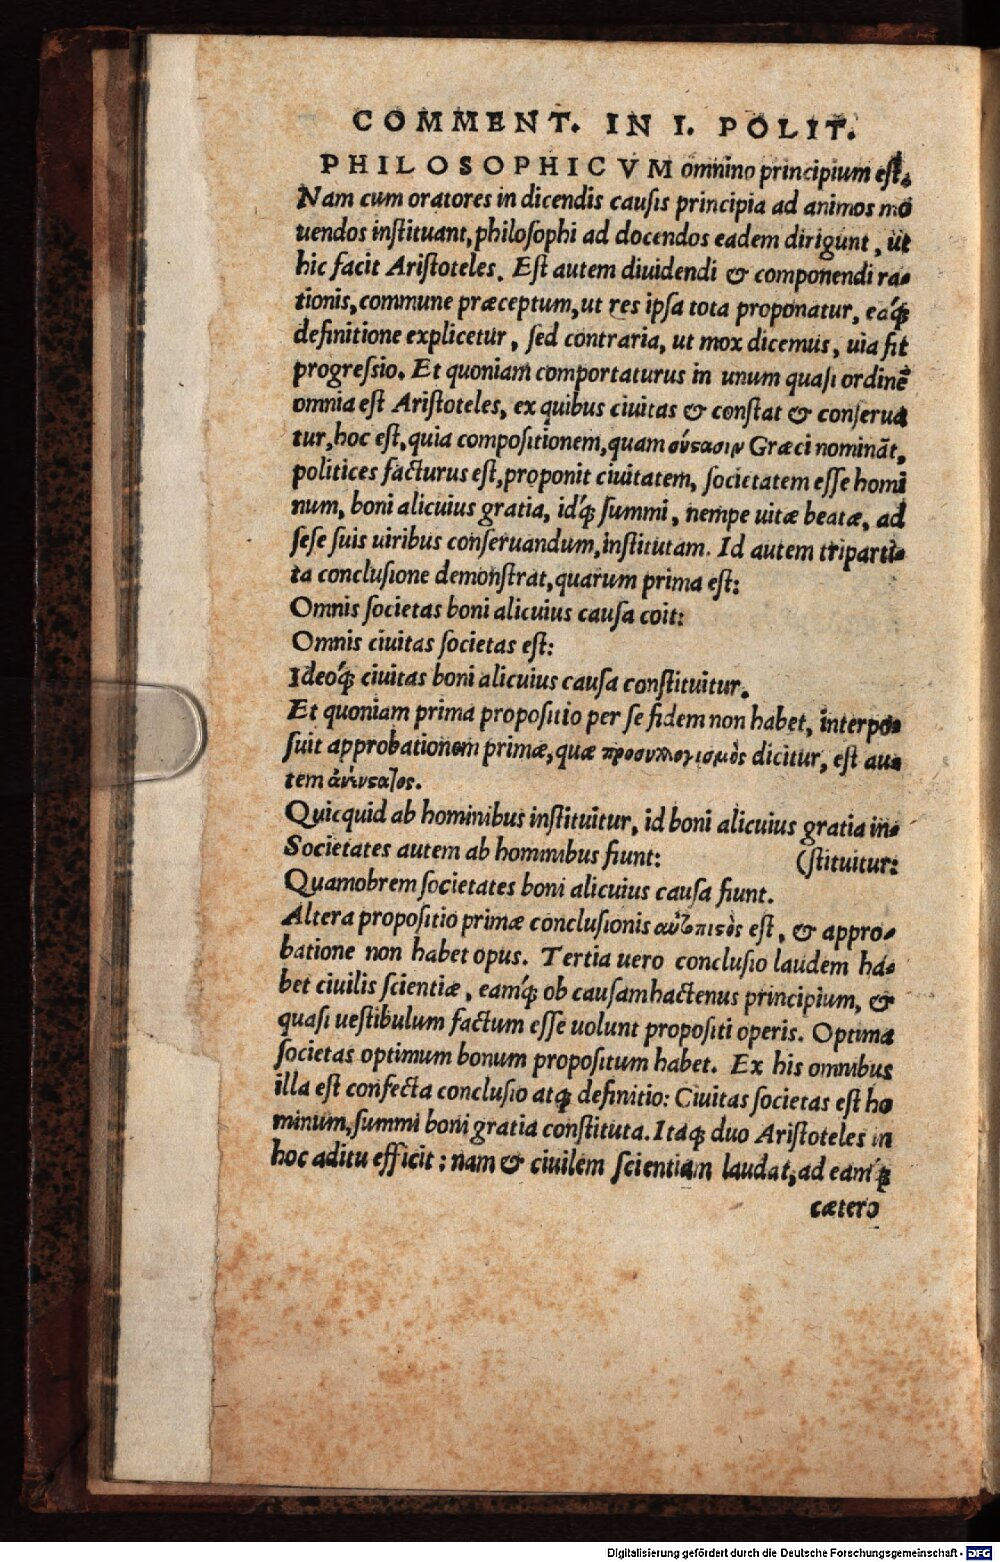 COMMENT. IN I. POLIT.
PHILOSOPHICVM omnino principium eſt.
Nam cum oratores in dicendis cauſis principia ad animos mo
uendos inſtituant, philoſophi ad docendos eadem dirigunt, ut
hic facit Ariſtoteles. Eſt autem diuidendi & componendi ra-
tionis, commune præceptum, ut res ipſa tota proponatur, eáq́;
definitione explicetur, ſed contraria, ut mox dicemus, uia fit
progreſsio. Et quoniam comportaturus in unum quaſi ordinē
omnia eſt Ariſtoteles, ex quibus ciuitas & conſtat & conſerua
tur, hoc eſt, quia compoſitionem, quam σύστασιν Græci nominãt,
politices facturus eſt, proponit ciuitatem, ſocietatem eſſe homi
num, boni alicuius gratia, idq́; ſummi, nempe uitæ beatæ, ad
ſeſe ſuis uiribus conſeruandum, inſtitutam. Id autem triparti-
ta concluſione demonſtrat, quarum prima eſt:
Omnis ſocietas boni alicuius cauſa coit:
Omnis ciuitas ſocietas eſt:
Ideoq́; ciuitas boni alicuius cauſa conſtituitur.
Et quoniam prima propoſitio per ſe fidem non habet, interpo-
ſuit approbationem primæ, quæ προσυλλογισμὸς dicitur, eſt au-
tem
Quicquid ab hominibus inſtituitur, id boni alicuius gratia in-
Societates autem ab hominibus fiunt: (ſtituitur:
Quamobrem ſocietates boni alicuius cauſa fiunt.
Altera propoſitio primæ concluſionis αὐτόπιστὸς eſt, & appro-
batione non habet opus. Tertia uero concluſio laudem ha-
bet ciuilis ſcientiæ, eamq́; ob cauſam hactenus principium, &
quaſi ueſtibulum factum eſſe uolunt propoſiti operis. Optima
ſocietas optimum bonum propoſitum habet. Ex his omnibus
illa eſt confecta concluſio atq; definitio: Ciuitas ſocietas eſt ho
minum, ſummi boni gratia conſtituta. Itaq; duo Ariſtoteles in
hoc aditu efficit: nam & ciuilem ſcientiam laudat, ad eamq́;
cætero
Digitalisierung gefördert durch die Deutsche Forschungsgemeinschaft - DFG